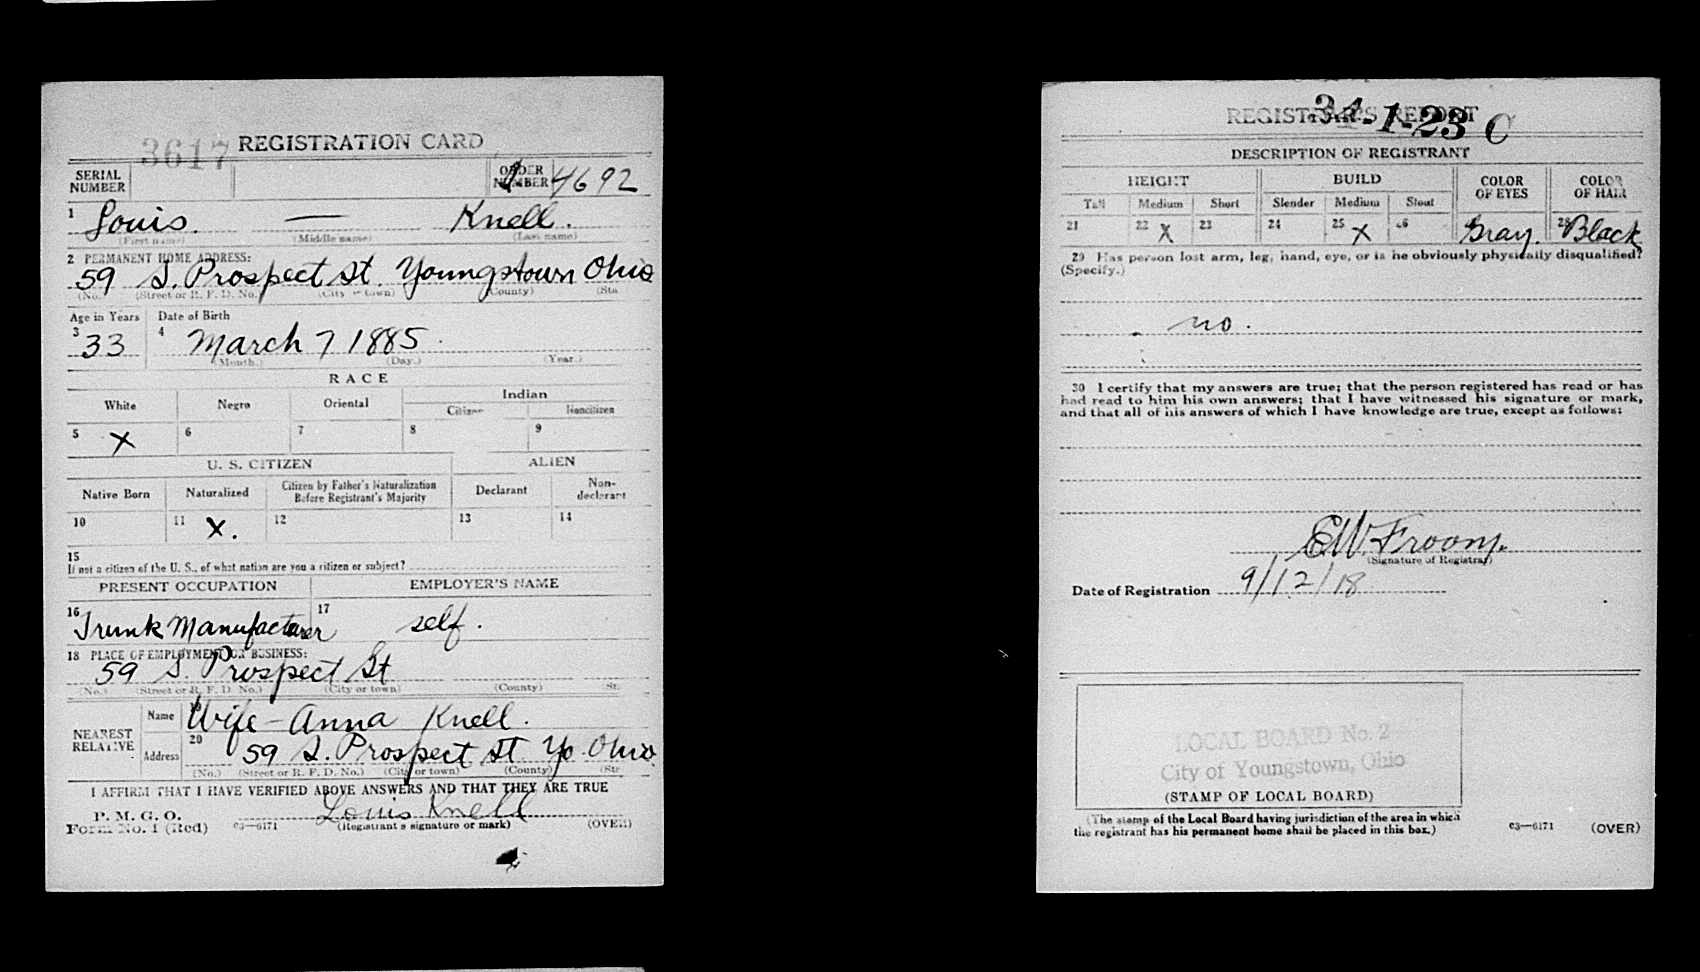 3617 REGISTRATION CARD
SERIAL NUMBER ORDER NUMBER 4692
1 Louis. — Knell.
(First name) (Middle name) (Last name)
2 PERMANENT HOME ADDRESS:
59 S. Prospect St. Youngstown Ohio
(No.) (Street or R. F. D. No.) (City or town) (County) (Sta
Age in Years Date of Birth
3 33 4 March 7 1885.
(Month.) (Day.) (Year.)
RACE
White Negro Oriental Indian
Citizen Noncitizen
5 X 6 7 8 9
U. S. CITIZEN ALIEN
Native Born Naturalized Citizen by Father's Naturalization Before Registrant's Majority Declarant Non-declarant
10 11 X. 12 13 14
15
If not a citizen of the U. S., of what nation are you a citizen or subject?
PRESENT OCCUPATION EMPLOYER'S NAME
16 Trunk Manufacturer 17 self.
18 PLACE OF EMPLOYMENT OR BUSINESS:
59 S. Prospect St
(No.) (Street or R. F. D. No.) (City or town) (County) (St.
NEAREST RELATIVE
Name 19 Wife - Anna Knell.
Address 20 59 S. Prospect St. Yo. Ohio.
(No.) (Street or R. F. D. No.) (City or town) (County) (Str
I AFFIRM THAT I HAVE VERIFIED ABOVE ANSWERS AND THAT THEY ARE TRUE
P. M. G. O.
Form No. 1 (Red) 03—6171 Louis Knell (OVER)
(Registrant's signature or mark)
REGISTRAR'S REPORT
34-1-23 C
DESCRIPTION OF REGISTRANT
HEIGHT BUILD COLOR OF EYES COLOR OF HAIR
Tall Medium Short Slender Medium Stout
21 22 X 23 24 25 X 26 Gray. 28 Black
29 Has person lost arm, leg, hand, eye, or is he obviously physically disqualified?
(Specify.)
no.
30 I certify that my answers are true; that the person registered has read or has
had read to him his own answers; that I have witnessed his signature or mark,
and that all of his answers of which I have knowledge are true, except as follows:
E.W. Froomy.
(Signature of Registrar)
Date of Registration 9/12/18
LOCAL BOARD No. 2
City of Youngstown, Ohio
(STAMP OF LOCAL BOARD)
(The stamp of the Local Board having jurisdiction of the area in which
the registrant has his permanent home shall be placed in this box.)
03—6171 (OVER)